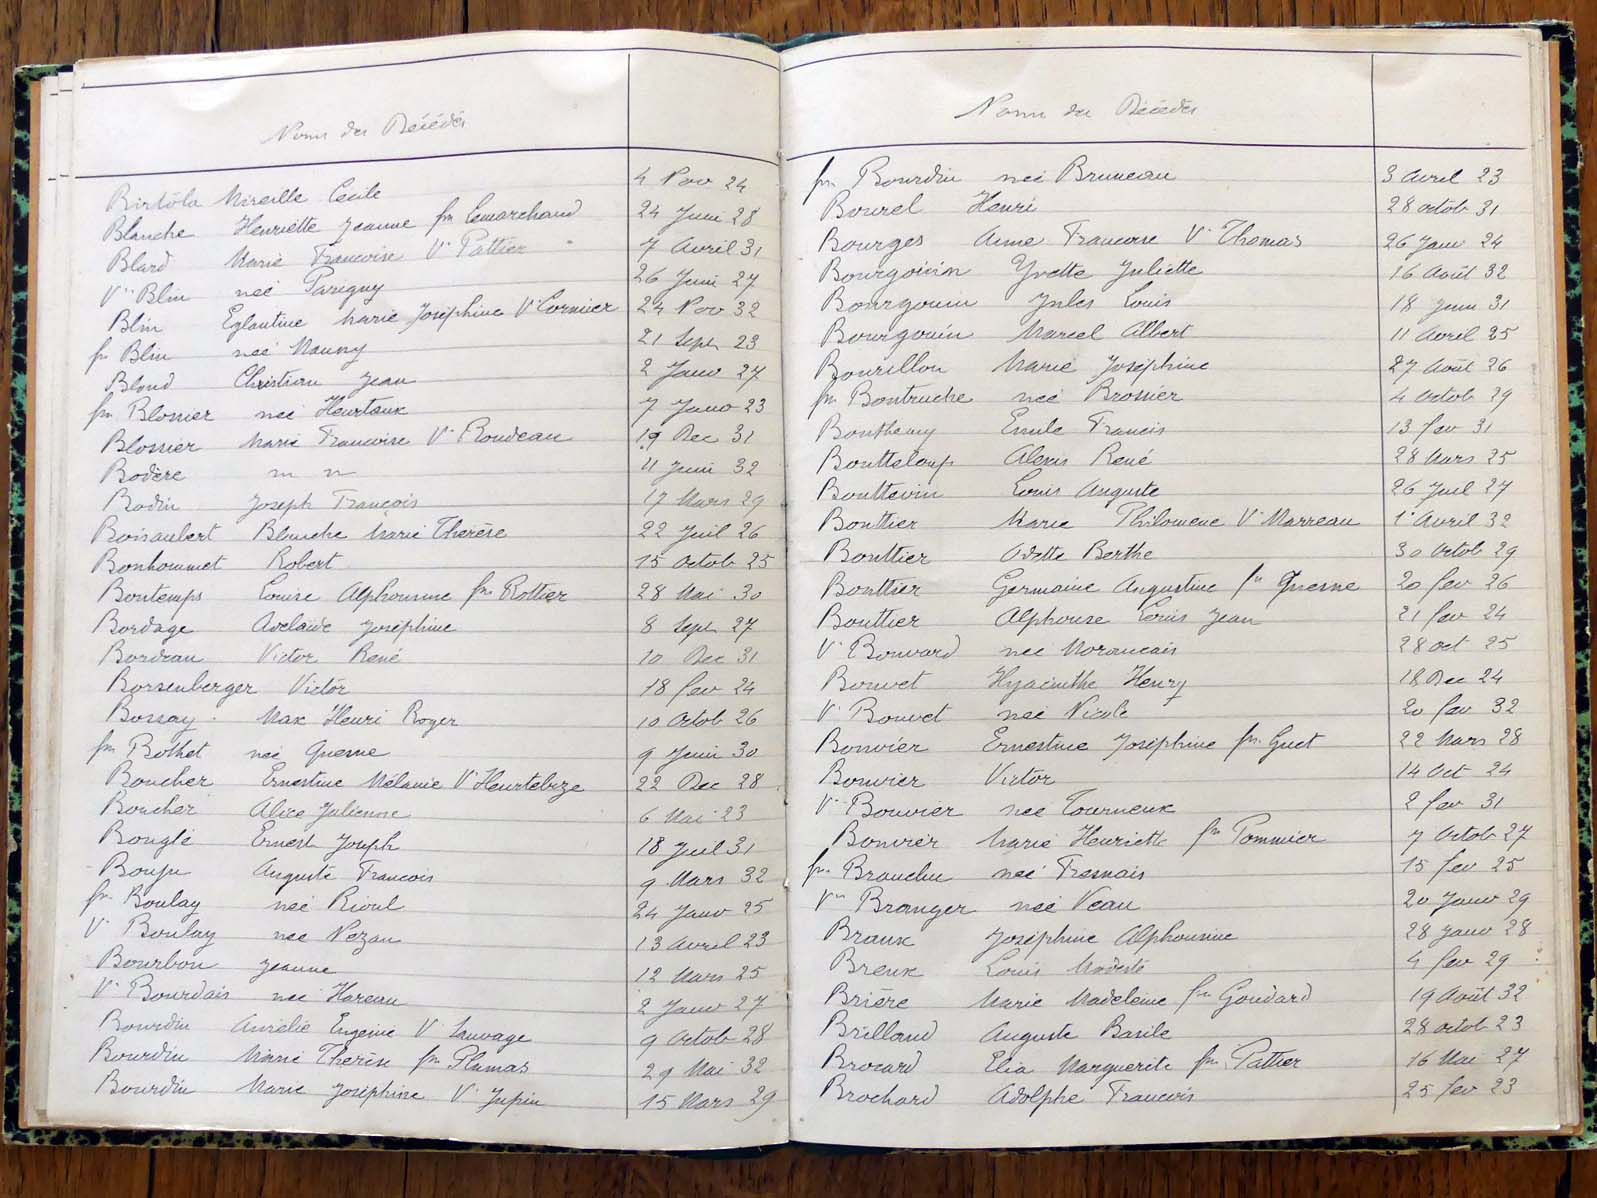 Noms des Décédés
Birtôla Mireille Cécile 4 Nov 24
Blanche Henriette Jeanne fm Lemarchand 24 Juin 28
Blard Marie Francoise Ve Pattier 7 Avril 31
Vve Blin neé Parigny 26 Juin 27
Blin Eglantine Marie Joséphine Ve Cormier 24 Nov 32
fe Blin neé Mauny 21 Sept 23
Blond Christian Jean 2 Janv 27
fm Blossier neé Heurtaux 7 Janv 23
Blossier Marie Francoise Ve Rondeau 19 Dec 31
Bodère m n 11 Juin 32
Bodin Joseph François 17 Mars 29
Boisaubert Blanche Marie Therèse 22 Juil 26
Bonhommet Robert 15 Octob 25
Bontemps Louise Alphonsine fm Rottier 28 Mai 30
Bordage Adelaïde Joséphine 8 Sept 27
Bordeau Victor René 10 Dec 31
Borsenberger Victor 18 fev 24
Bossay Max Henri Roger 10 Octob 26
fm Bothet neé Guesne 9 Juin 30
Boucher Ernestine Mélanie Ve Heurtebize 22 Dec 28
Boucher Alice Julienne 6 Mai 23
Bouglé Ernest Joseph 18 Juil 31
Auguste Francois 9 Mars 32
fm Boulay neé Rioul 24 Janv 25
Ve Boulay neé Nezan 13 Avril 23
Bourbon Jeanne 12 Mars 25
Ve Bourdais neé Hareau 2 Janv 27
Bourdin Aurélie Eugenie Ve Sauvage 9 Octob 28
Bourdin Marie Therèse fm Plumas 29 Mai 32
Bourdin Marie Joséphine Ve Jupin 15 Mars 29
Noms des Décédés
fm Bourdin neé Bruneau 3 Avril 23
Bourel Henri 28 octob 31
Bourges Anne Francoise Ve Thomas 26 Janv 24
Bourgoinin Yvette Juliette 16 Août 32
Bourgouin Jules Louis 18 Juin 31
Bourgouin Marcel Albert 11 Avril 25
Bourillon Marie Joséphine 27 Août 26
fm Boutruche neé Brossier 4 Octob 29
Bouthemy Emile Francis 13 fev 31
Boutteloup Alexis René 28 Mars 25
Bouttevin Louis Auguste 26 Juil 27
Bouttier Marie Philomene Ve Marreau 1er Avril 32
Bouttier Odette Berthe 30 Octob 29
Bouttier Germaine Augustine fm Guesne 20 fev 26
Bouttier Alphonse Louis Jean 21 fev 24
Ve Bouvard neé Morancais 28 oct 25
Bouvet Hyacinthe Henry 18 Dec 24
Ve Bouvet neé Nicole 20 fev 32
Bouvier Ernestine Joséphine fm Guet 22 Mars 28
Bouvier Victor 14 Oct 24
Ve Bouvier neé Tourneux 2 fev 31
Bouvier Marie Henriette fm Pommier 7 Octob 27
fm Brauchu neé Fresnais 15 fev 25
Vve Branger neé Veau 20 Janv 29
Braux Joséphine Alphonsine 28 Janv 28
Breux Louis Modeste 4 fev 29
Brière Marie Madeleine fm Goudard 19 Août 32
Brilland Auguste Basile 28 octob 23
Brocard Elia Marguerite fm Pattier 16 Mai 27
Brochard Adolphe Francois 25 fev 23